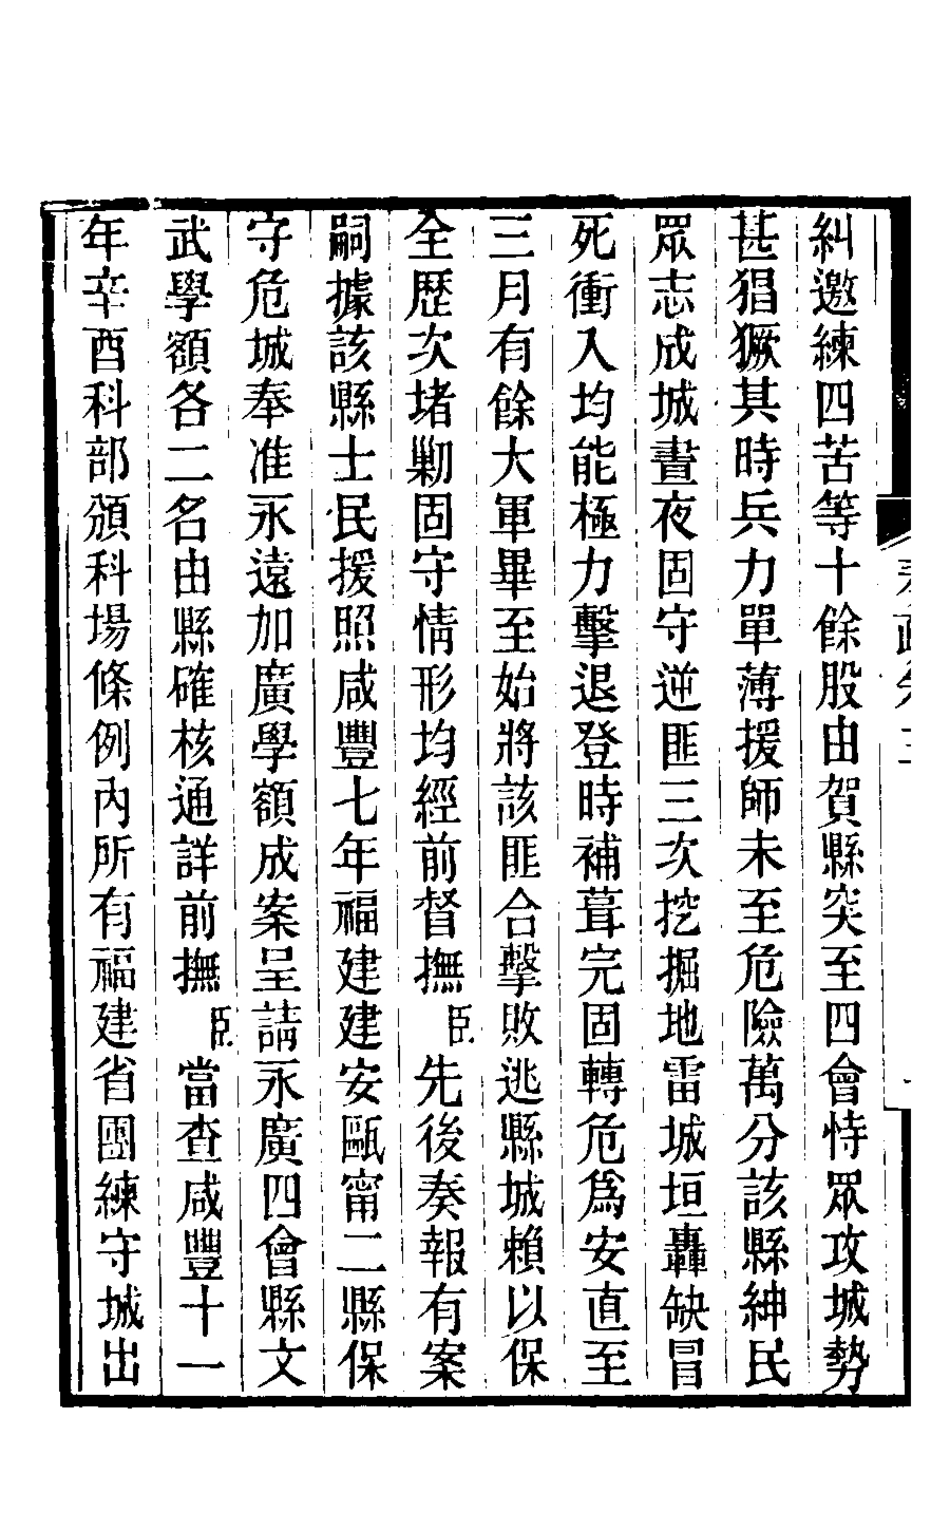 糾邀練四苦等十餘股由賀縣突至四會恃眾攻城勢
甚猖獗其時兵力單薄援師未至危險萬分該縣紳民
眾志成城晝夜固守逆匪三次挖掘地雷城垣轟缺冒
死衝入均能極力擊退登時補葺完固轉危爲安直至
三月有餘大軍畢至始將該匪合擊敗逃縣城賴以保
全歷次堵剿固守情形均經前督撫臣先後奏報有案
嗣據該縣士民援照咸豐七年福建建安甌甯二縣保
守危城奉准永遠加廣學額成案呈請永廣四會縣文
武學額各二名由縣確核通詳前撫臣當查咸豐十一
年辛酉科部頒科場條例內所有福建省團練守城出